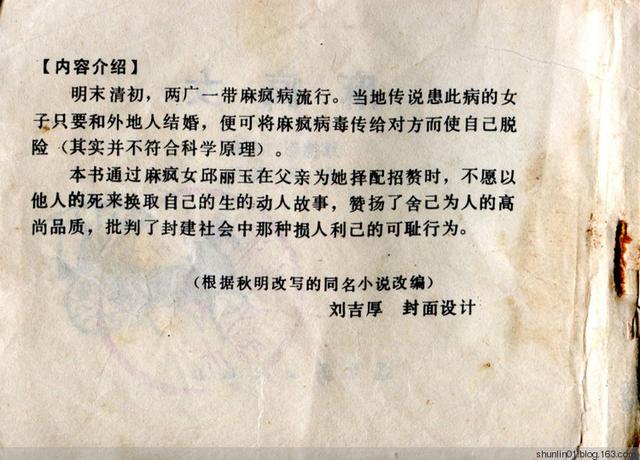 【内容介绍】
明末清初，两广一带麻疯病流行。当地传说患此病的女
子只要和外地人结婚，便可将麻疯病毒传给对方而使自己脱
险（其实并不符合科学原理）。
本书通过麻疯女邱丽玉在父亲为她择配招赘时，不愿以
他人的死来换取自己的生的动人故事，赞扬了舍己为人的高
尚品质，批判了封建社会中那种损人利己的可耻行为。
（根据秋明改写的同名小说改编）
刘吉厚 封面设计
shunlin01.blog.163.com